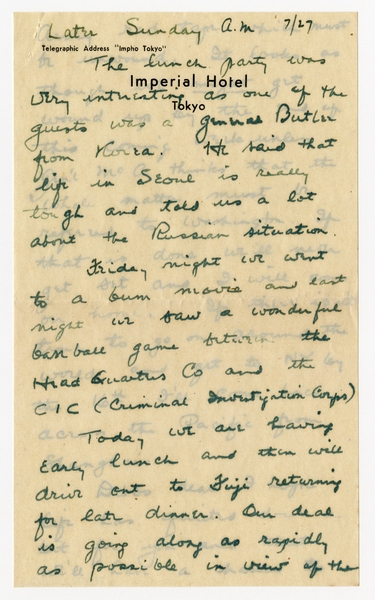 Later Sunday A.M 7/27
Telegraphic Address "Impho Tokyo"
The lunch party was
Imperial Hotel
very interesting as one of the
Tokyo
guests was a General Butler
from Korea. He said that
life in Seoul is really
tough and told us a lot
about the Russian situation.
Friday night we went
to a bum movie and last
night we saw a wonderful
baseball game between the
Head Quarters Co and the
CIC (Criminal Investigation Corps)
Today we are having
early lunch and then will
drive out to Fuji returning
for late dinner. Our deal
is going along as rapidly
as possible in view of the